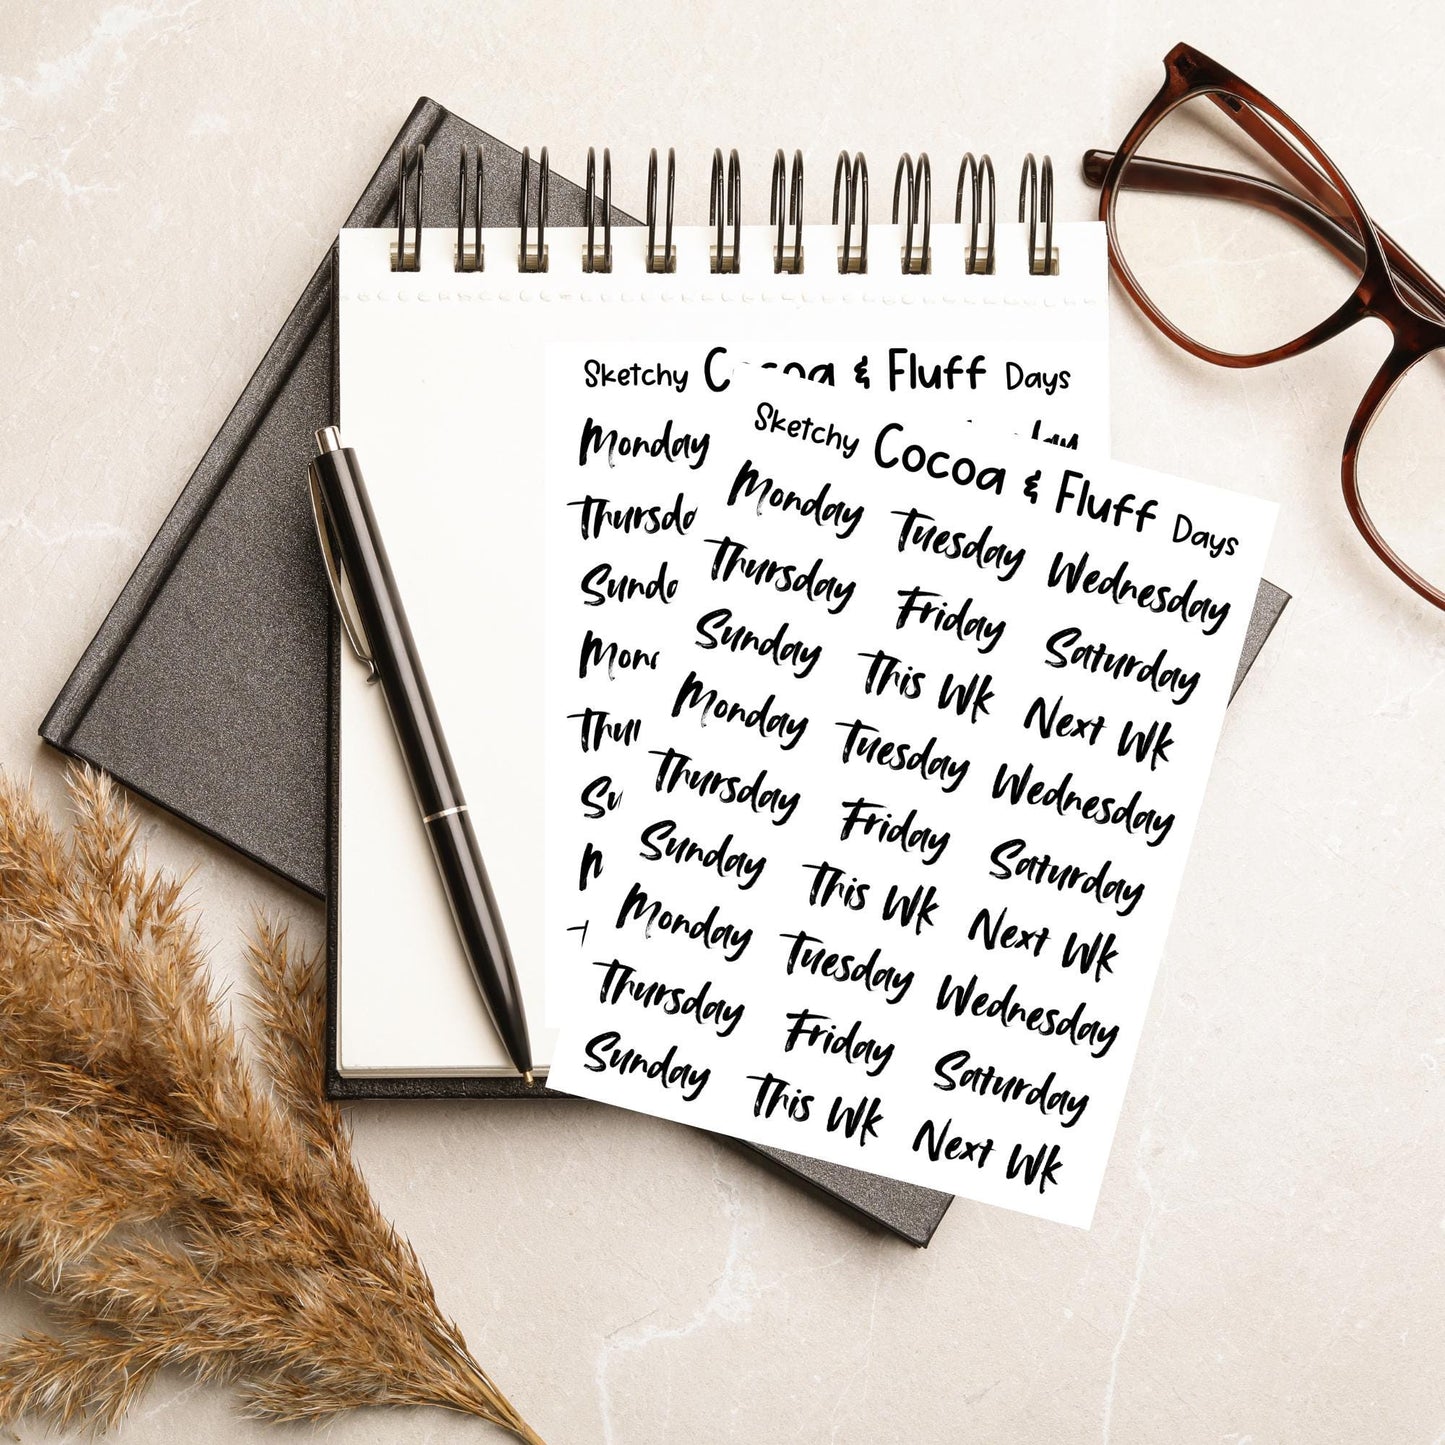 Sketchy Cocoa & Fluff Days
Monday
Sketchy Cocoa & Fluff Days
Monday Tuesday Wednesday
Thursday Friday Saturday
Sunday This Wk Next Wk
Monday Tuesday Wednesday
Thursday Friday Saturday
Sunday This Wk Next Wk
Monday Tuesday Wednesday
Thursday Friday Saturday
Sunday This Wk Next Wk